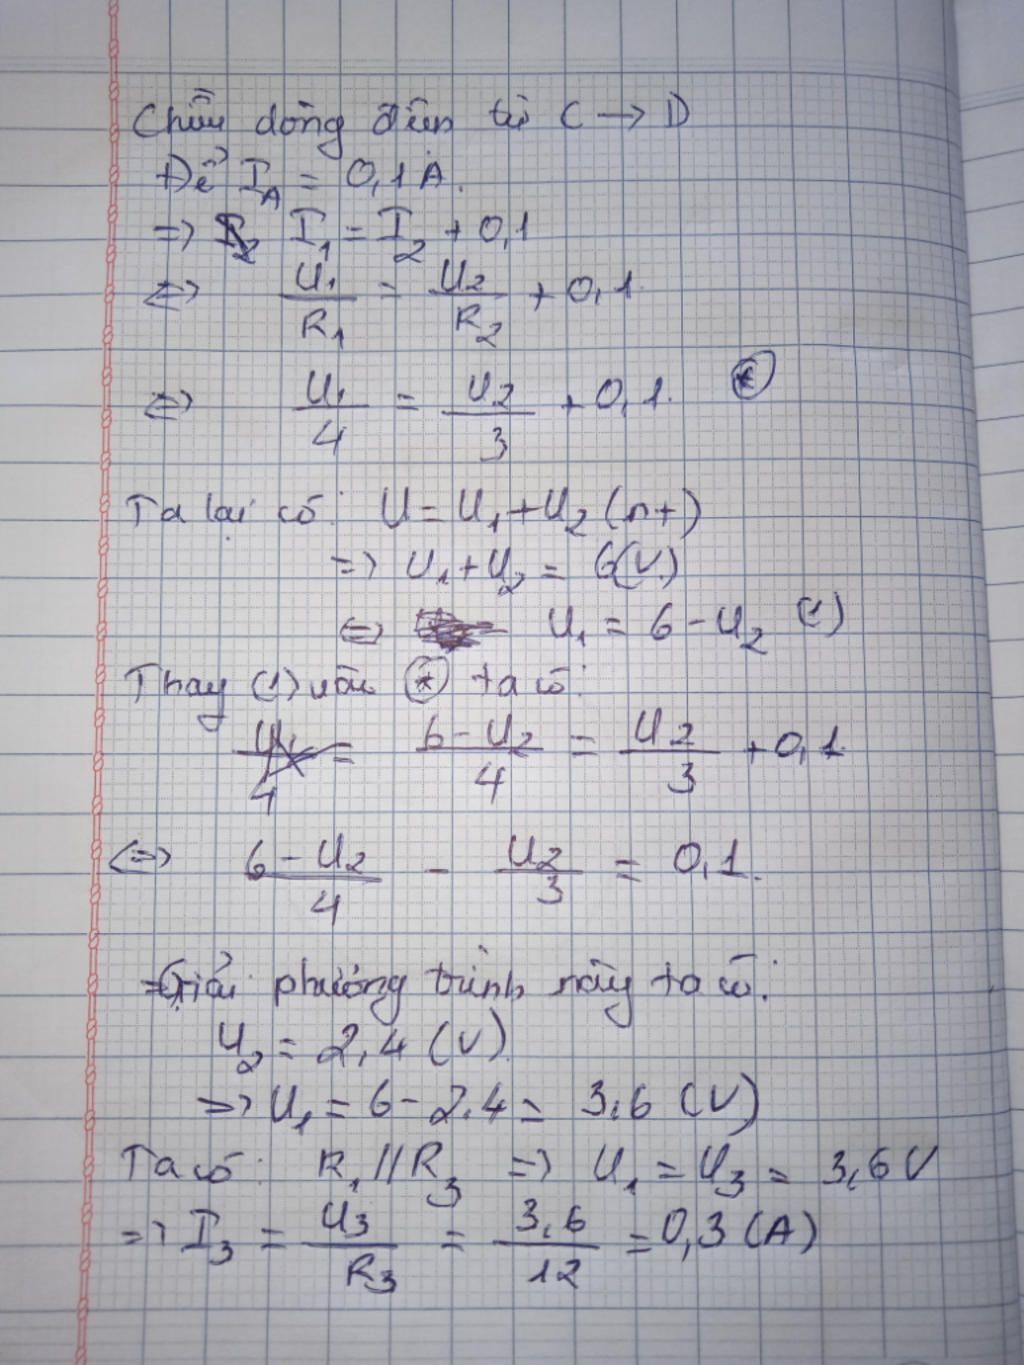 Chiều dòng điện từ C → D
Để I_A = 0,1A.
=> I_1 = I_2 + 0,1
<=> U_1/R_1 = U_2/R_2 + 0,1
<=> U_1/4 = U_2/3 + 0,1. (*)
Ta lại có: U = U_1 + U_2 (nt)
=> U_1 + U_2 = 6(V)
<=> U_1 = 6 - U_2 (1)
Thay (1) vào (*) ta có:
(6 - U_2)/4 = U_2/3 + 0,1
<=> (6 - U_2)/4 - U_2/3 = 0,1.
Giải phương trình này ta có:
U_2 = 2,4 (V)
=> U_1 = 6 - 2,4 = 3,6 (V)
Ta có: R_1 // R_3 => U_1 = U_3 = 3,6 V
=> I_3 = U_3/R_3 = 3,6/12 = 0,3 (A)